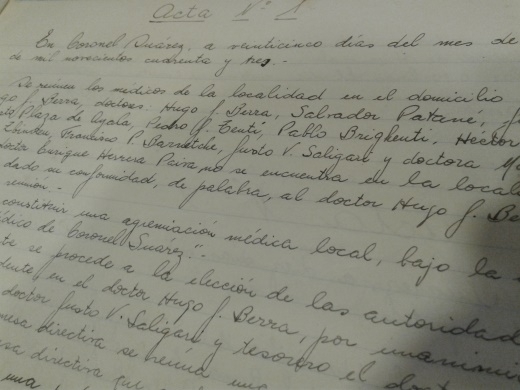 Acta Nº 1
En Coronel Suárez, a veinticinco días del mes de
de mil novecientos cuarenta y tres.-
Se reunen los médicos de la localidad en el domicilio
J. Berra, doctores: Hugo J. Berra, Salvador Patané,
Plaza de Ayala, Pedro J. Tenti, Pablo Brighenti, Héctor
Francisco P. Barnetche, Justo V. Saligari y doctora
doctor Enrique Herrera Paiva no se encuentra en la
dado su conformidad, de palabra, al doctor Hugo J.
reunión.-
constituir una agremiación médica local, bajo la
édico de Coronel Suárez".-
se procede a la elección de las autoridad
dente en el doctor Hugo J. Berra, por unanimi
doctor Justo V. Saligari y tesorero el
mesa directiva se reúna una
directiva
una